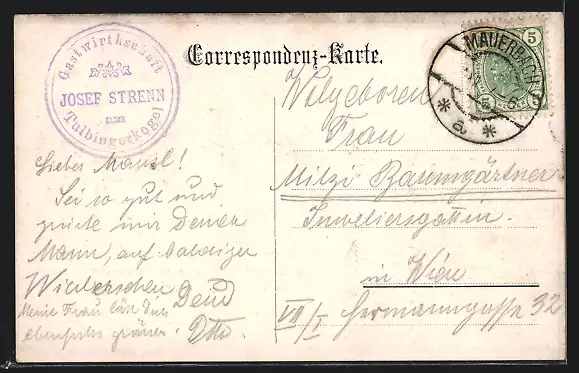 Gastwirthschaft
JOSEF STRENN
am
Tulbingerkogel
Correspondenz-Karte.
MAUERBACH
* a *
5 5
5
Wolgeboren
Frau
Mitzi Baumgärtner
Juweliersgattin.
in Wien
VII/I Hermanngasse 32
Liebes
Sei so gut und
mir Deinen
Mann, auf baldiges
Wiedersehen
Meine Frau läst Dich
ebenfalls grüßen. Otto